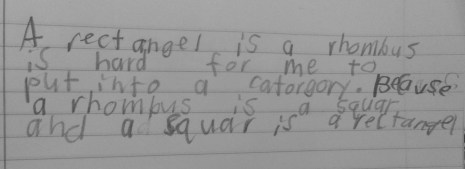 A rectangel is a rhombus
is hard for me to
put into a catorgory. Because
a rhombus is a squar
and a squar is a rectangel